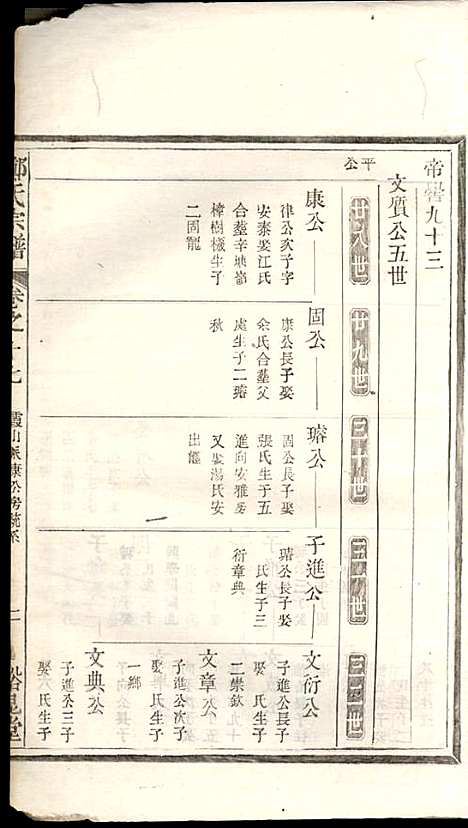 帝嚳九十三
文質公五世
平公
廿八世
廿九世
三十世
三十一世
三十二世
康公
律公次子字
安泰娶江氏
合塟辛坱崙
樟樹樣生子
二固寵
固公
康公長子娶
余氏合塟父
處生子二瑢
秋
瑢公
固公長子娶
張氏生子五
進向安雅房
又娶湯氏安
出繼
子進公
瑢公長子娶
氏生子三
衍章典
文衍公
子進公長子
娶 氏生子
二崇欽
文章公
子進公次子
娶 氏生子
一鄉
文典公
子進公三子
娶 氏生子
鄭氏宗譜
卷之十七
霞山派康公房統系